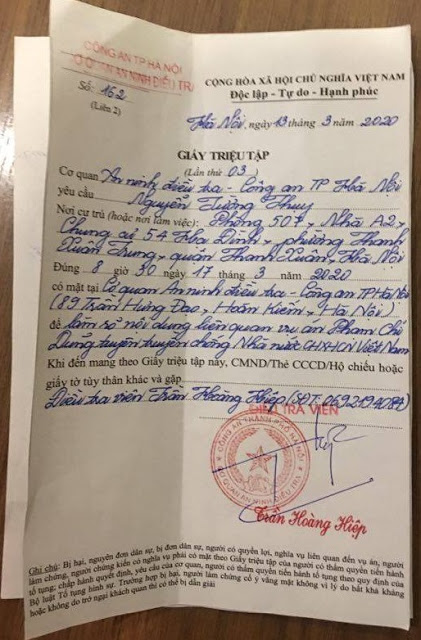 CÔNG AN TP HÀ NỘI
CƠ QUAN AN NINH ĐIỀU TRA
Số: 162
(Liên 2)
CỘNG HÒA XÃ HỘI CHỦ NGHĨA VIỆT NAM
Độc lập - Tự do - Hạnh phúc
Hà Nội, ngày 13 tháng 3 năm 2020
GIẤY TRIỆU TẬP
(Lần thứ 03)
Cơ quan An ninh điều tra - Công an TP Hà Nội
yêu cầu Nguyễn Tường Thụy
Nơi cư trú (hoặc nơi làm việc): Phòng 507, Nhà A2,
Chung cư 54 Hạ Đình, phường Thanh
Xuân Trung, quận Thanh Xuân, Hà Nội
Đúng 8 giờ 30 ngày 17 tháng 3 năm 2020
có mặt tại Cơ quan An ninh điều tra - Công an TP Hà Nội
(89 Trần Hưng Đạo, Hoàn Kiếm, Hà Nội)
để làm rõ nội dung liên quan vụ án Phạm Chí
Dũng tuyên truyền chống Nhà nước CHXHCN Việt Nam
Khi đến mang theo Giấy triệu tập này, CMND/Thẻ CCCD/Hộ chiếu hoặc
giấy tờ tùy thân khác và gặp
Điều tra viên Trần Hoàng Hiệp (SĐT: 0692194084)
ĐIỀU TRA VIÊN
CÔNG AN THÀNH PHỐ HÀ NỘI
CƠ QUAN AN NINH ĐIỀU TRA
Trần Hoàng Hiệp
Ghi chú: Bị hại, nguyên đơn dân sự, bị đơn dân sự, người có quyền lợi, nghĩa vụ liên quan đến vụ án, người
làm chứng, người chứng kiến có nghĩa vụ phải có mặt theo Giấy triệu tập của người có thẩm quyền tiến hành
tố tụng; chấp hành quyết định, yêu cầu của cơ quan, người có thẩm quyền tiến hành tố tụng theo quy định của
Bộ luật Tố tụng hình sự. Trường hợp bị hại, người làm chứng cố ý vắng mặt không vì lý do bất khả kháng
hoặc không do trở ngại khách quan thì có thể bị dẫn giải